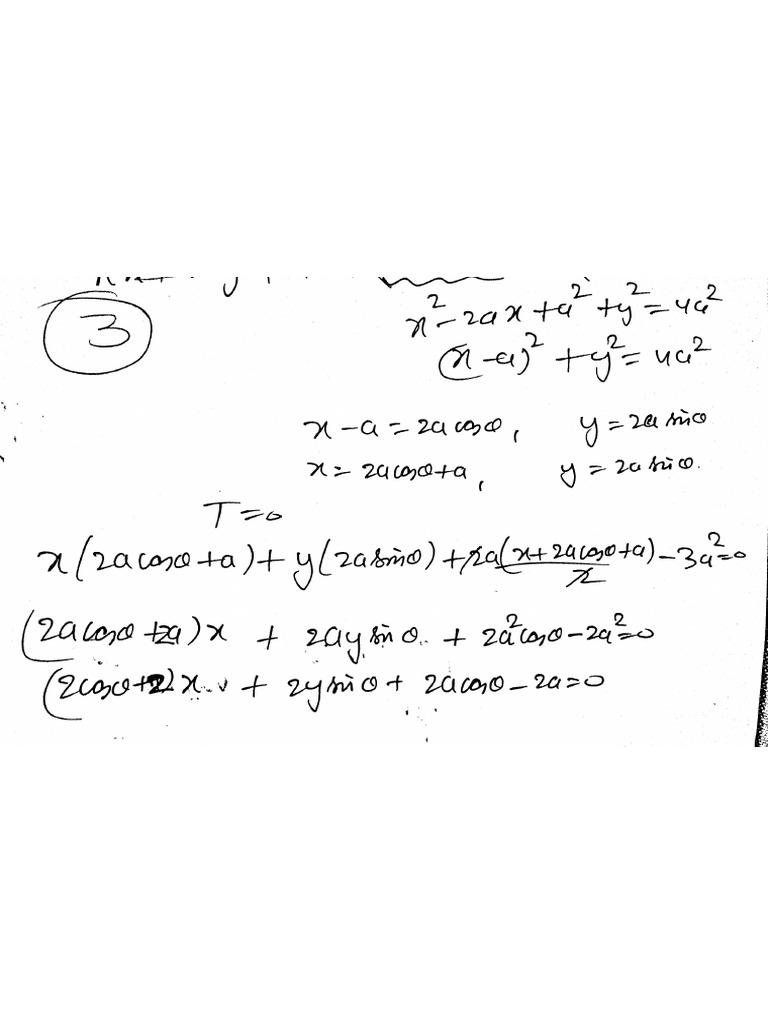 3
x² - 2ax + a² + y² = 4a²
(x - a)² + y² = 4a²
x - a = 2a cosθ, y = 2a sinθ
x = 2a cosθ + a, y = 2a sinθ.
T = 0
x(2a cosθ + a) + y(2a sinθ) + 2a(x + 2a cosθ + a)/2 - 3a² = 0
(2a cosθ + 2a)x + 2ay sinθ + 2a² cosθ - 2a² = 0
(2cosθ + 2)x + 2y sinθ + 2a cosθ - 2a = 0